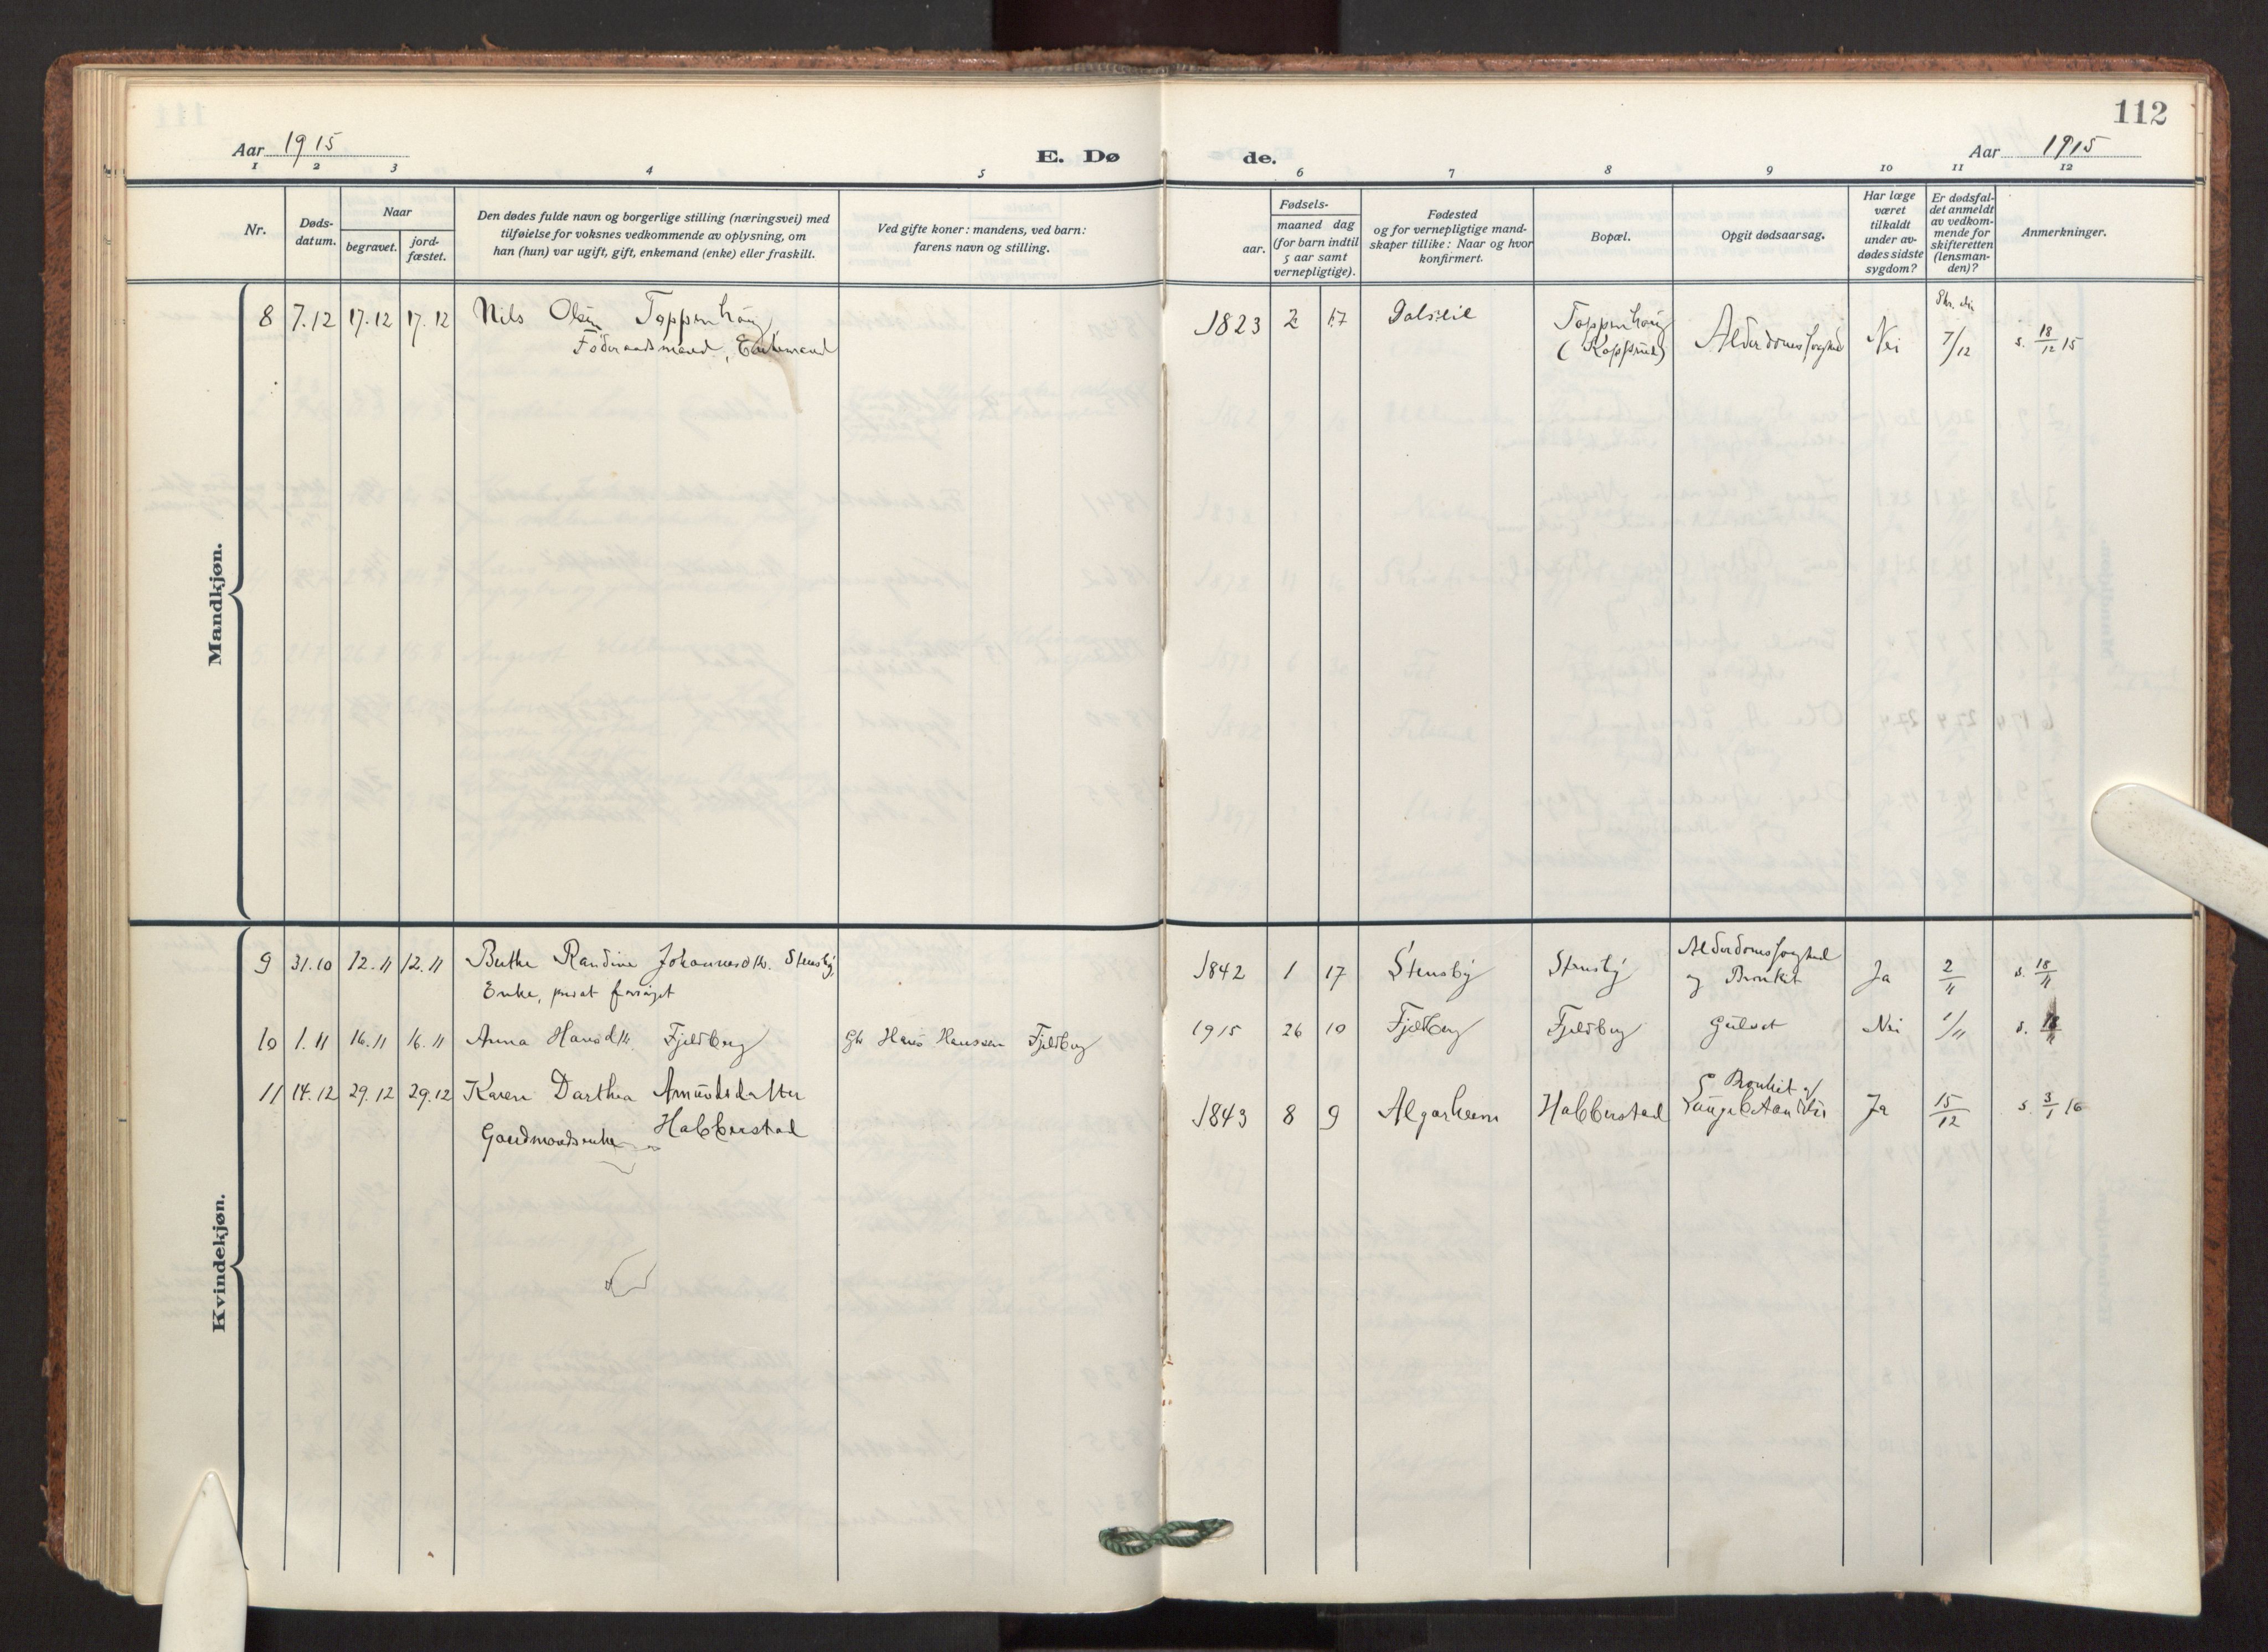 112
Aar 1915
E. Dø
de.
Aar 1915
1 2 3 4 5 6 7 8 9 10 11 12
Nr.
Døds-
datum.
Naar
begravet.
jord-
fæstet.
Den dødes fulde navn og borgerlige stilling (næringsvei) med
tilføielse for voksnes vedkommende av oplysning, om
han (hun) var ugift, gift, enkemand (enke) eller fraskilt.
Ved gifte koner: mandens, ved barn:
farens navn og stilling.
Fødsels-
aar.
maaned dag
(for barn indtil
5 aar samt
vernepligtige).
Fødested
og for vernepligtige mand-
skaper tillike: Naar og hvor
konfirmert.
Bopæl.
Opgit dødsaarsag.
Har læge
været
tilkaldt
under av-
dødes sidste
sygdom?
Er dødsfal-
det anmeldt
av vedkom-
mende for
skifteretten
(lensman-
den)?
Anmerkninger.
Mandkjøn.
8 7.12 17.12 17.12 Nils Olsen Toppenhaug
Føderaadsmand, Enkemand
1823 2 17 Toppenhaug
Alderdomssvaghed Nei 7/12 s. 18/12 15
Kvindekjøn.
9 31.10 12.11 12.11 Berthe Randine Johannesdtr. Stensby
Enke, privat forsørget
1842 1 17 Stensby Stensby Alderdomssvaghed
og Bronkit Ja 2/11 s. 18/11
10 1.11 16.11 16.11 Anna Hansdtr. Fjeldberg Hans Hanssen Fjeldberg
1915 26 10 Fjeldberg Fjeldberg Gulsot Nei 1/11 s. 18/11
11 14.12 29.12 29.12 Karen Darthea Amundsdatter
Gaardmandsenke Habberstad
1843 8 9 Algarheim Habberstad Bronkit og
Ja 15/12 s. 3/1 16